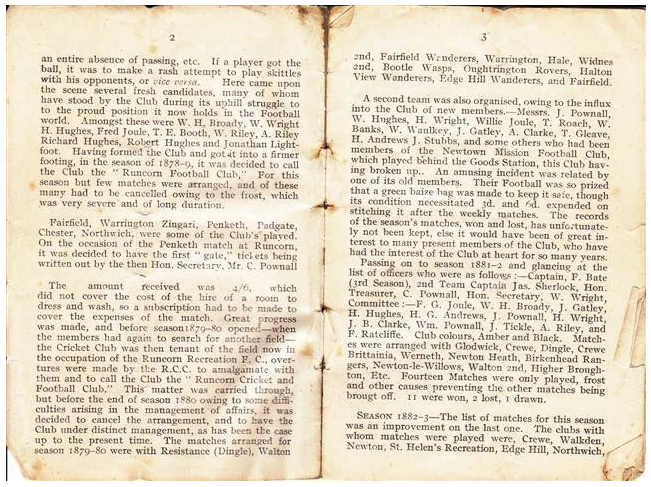 2
an entire absence of passing, etc. If a player got the
ball, it was to make a rash attempt to play skittles
with his opponents, or vice versa. Here came upon
the scene several fresh candidates, many of whom
have stood by the Club during its uphill struggle to
to the proud position it now holds in the Football
world. Amongst these were W. H, Broady, W. Wright
H. Hughes, Fred Joule, T. E. Booth, W. Riley, A. Riley
Richard Hughes, Robert Hughes and Jonathan Light-
foot. Having formed the Club and got it into a firmer
footing, in the season of 1878-9, it was decided to call
the Club the "Runcorn Football Club," For this
season but few matches were arranged, and of these
many had to be cancelled owing to the frost, which
was very severe and of long duration.
Fairfield, Warrington Zingari, Penketh, Padgate,
Chester, Northwich, were some of the Club's played.
On the occasion of the Penketh match at Runcorn,
it was decided to have the first "gate," tickets being
written out by the then Hon. Secretary, Mr. C. Pownall
The amount received was 4/6, which
did not cover the cost of the hire of a room to
dress and wash, so a subscription had to be made to
cover the expenses of the match. Great progress
was made, and before season 1879-80 opened—when
the members had again to search for another field—
the Cricket Club was then tenant of the field now in
the occupation of the Runcorn Recreation F. C., over-
tures were made by the R.C.C. to amalgamate with
them and to call the Club the "Runcorn Cricket and
Football Club." This matter was carried through,
but before the end of season 1880 owing to some diffi-
culties arising in the management of affairs, it was
decided to cancel the arrangement, and to have the
Club under distinct management, as has been the case
up to the present time. The matches arranged for
season 1879-80 were with Resistance (Dingle), Walton
3
2nd, Fairfield Wanderers, Warrington, Hale, Widnes
2nd, Bootle Wasps, Oughtrington Rovers, Halton
View Wanderers, Edge Hill Wanderers, and Fairfield.
A second team was also organised, owing to the influx
into the Club of new members.—Messrs. J. Pownall,
W. Hughes, H. Wright, Willie Joule, T. Roach, W.
Banks, W. Waulkey, J. Gatley, A. Clarke, T. Gleave,
H. Andrews J. Stubbs, and some others who had been
members of the Newtown Mission Football Club,
which played behind the Goods Station, this Club hav-
ing broken up.. An amusing incident was related by
one of its old members. Their Football was so prized
that a green baize bag was made to keep it safe, though
its condition necessitated 3d. and 6d. expended on
stitching it after the weekly matches. The records
of the season's matches, won and lost, has unfortunate-
ly not been kept, else it would have been of great in-
terest to many present members of the Club, who have
had the interest of the Club at heart for so many years.
Passing on to season 1881-2 and glancing at the
list of officers who were as follows:—Captain, F. Bate
(3rd Season), 2nd Team Captain Jas. Sherlock, Hon.
Treasurer, C. Pownall, Hon. Secretary, W. Wright,
Committee:—F. G. Joule, W. H. Broady, J. Gatley,
H. Hughes, H. G. Andrews, J. Pownall, H. Wright,
J. B. Clarke, Wm. Pownall, J. Tickle, A. Riley, and
F. Ratcliffe. Club colours, Amber and Black. Match-
es were arranged with Glodwick, Crewe, Dingle, Crewe
Brittainia, Werneth, Newton Heath, Birkenhead Ran-
gers, Newton-le-Willows, Walton 2nd, Higher Brough-
ton, Etc. Fourteen Matches were only played, frost
and other causes preventing the other matches being
brougt off. 11 were won, 2 lost, 1 drawn.
SEASON 1882-3—The list of matches for this season
was an improvement on the last one. The clubs with
whom matches were played were, Crewe, Walkden,
Newton, St. Helen's Recreation, Edge Hill, Northwich,